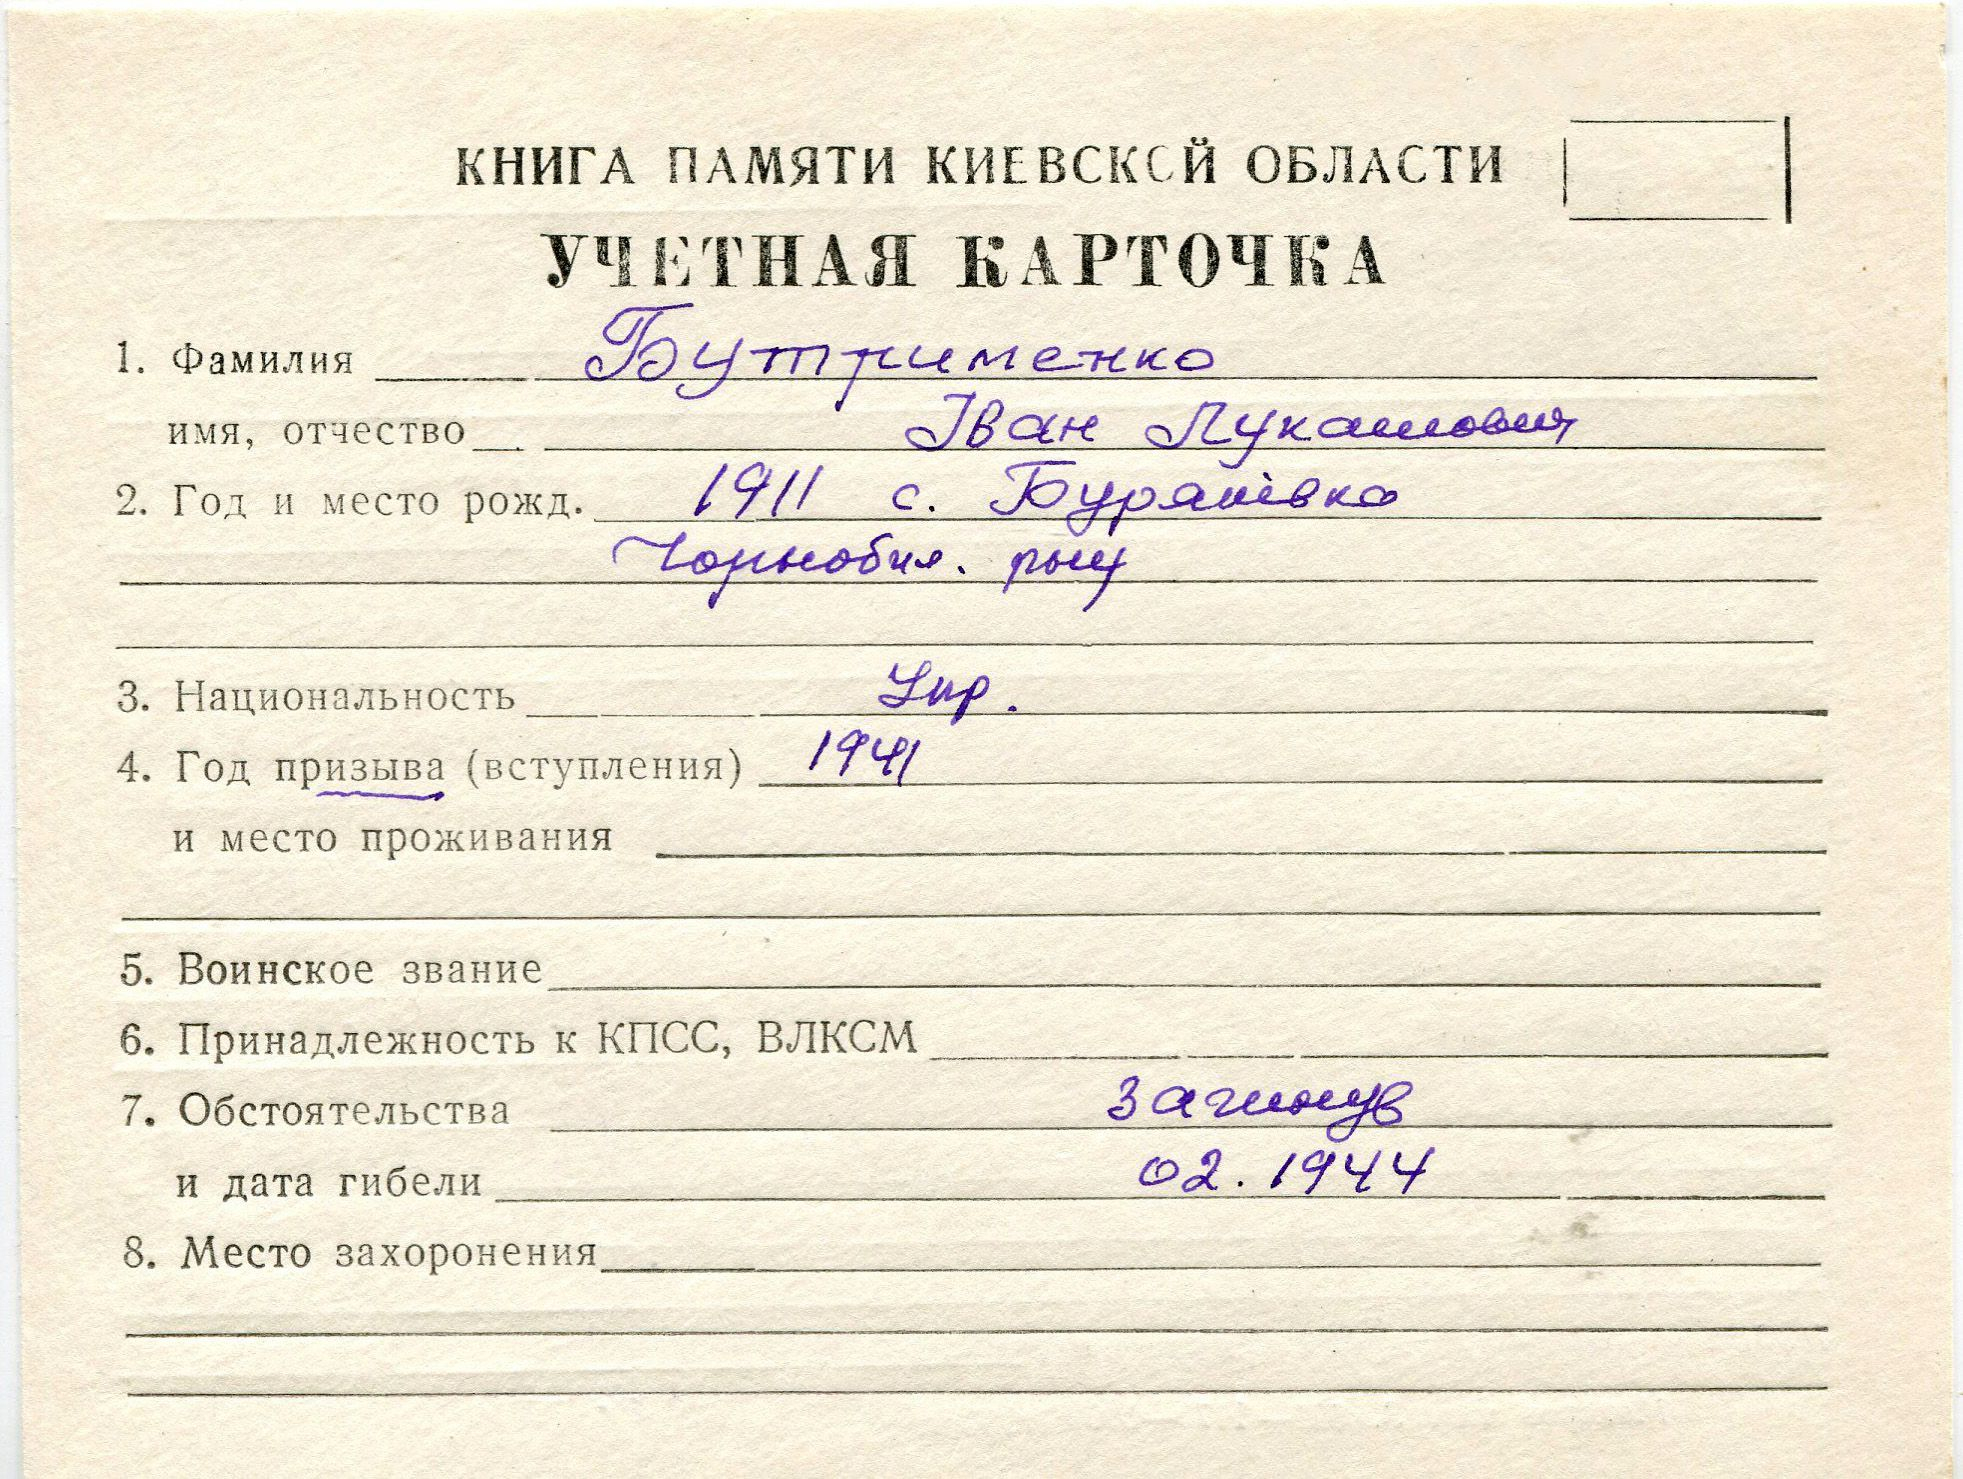 КНИГА ПАМЯТИ КИЕВСКОЙ ОБЛАСТИ
УЧЕТНАЯ КАРТОЧКА
1. Фамилия Бутрименко
имя, отчество Іван Лукашович
2. Год и место рожд. 1911 с. Буряківка
Чорнобил. р-ну
3. Национальность Укр.
4. Год призыва (вступления) 1941
и место проживания
5. Воинское звание
6. Принадлежность к КПСС, ВЛКСМ
7. Обстоятельства загинув
и дата гибели 02.1944
8. Место захоронения